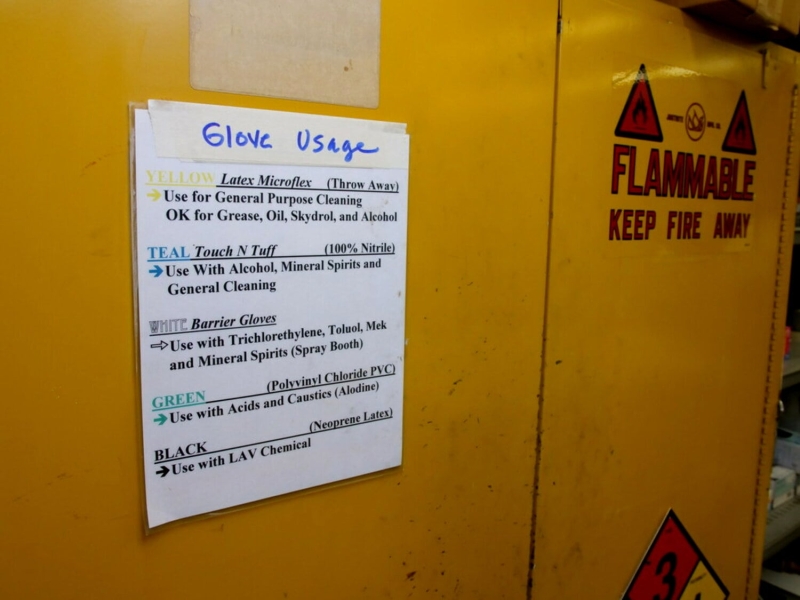 Glove Usage
YELLOW Latex Microflex (Throw Away)
➔ Use for General Purpose Cleaning
OK for Grease, Oil, Skydrol, and Alcohol
TEAL Touch N Tuff (100% Nitrile)
➔ Use With Alcohol, Mineral Spirits and
General Cleaning
WHITE Barrier Gloves
⇨ Use with Trichlorethylene, Toluol, Mek
and Mineral Spirits (Spray Booth)
(Polyvinyl Chloride PVC)
GREEN
➔ Use with Acids and Caustics (Alodine)
(Neoprene Latex)
BLACK
➔ Use with LAV Chemical
FLAMMABLE
KEEP FIRE AWAY
3